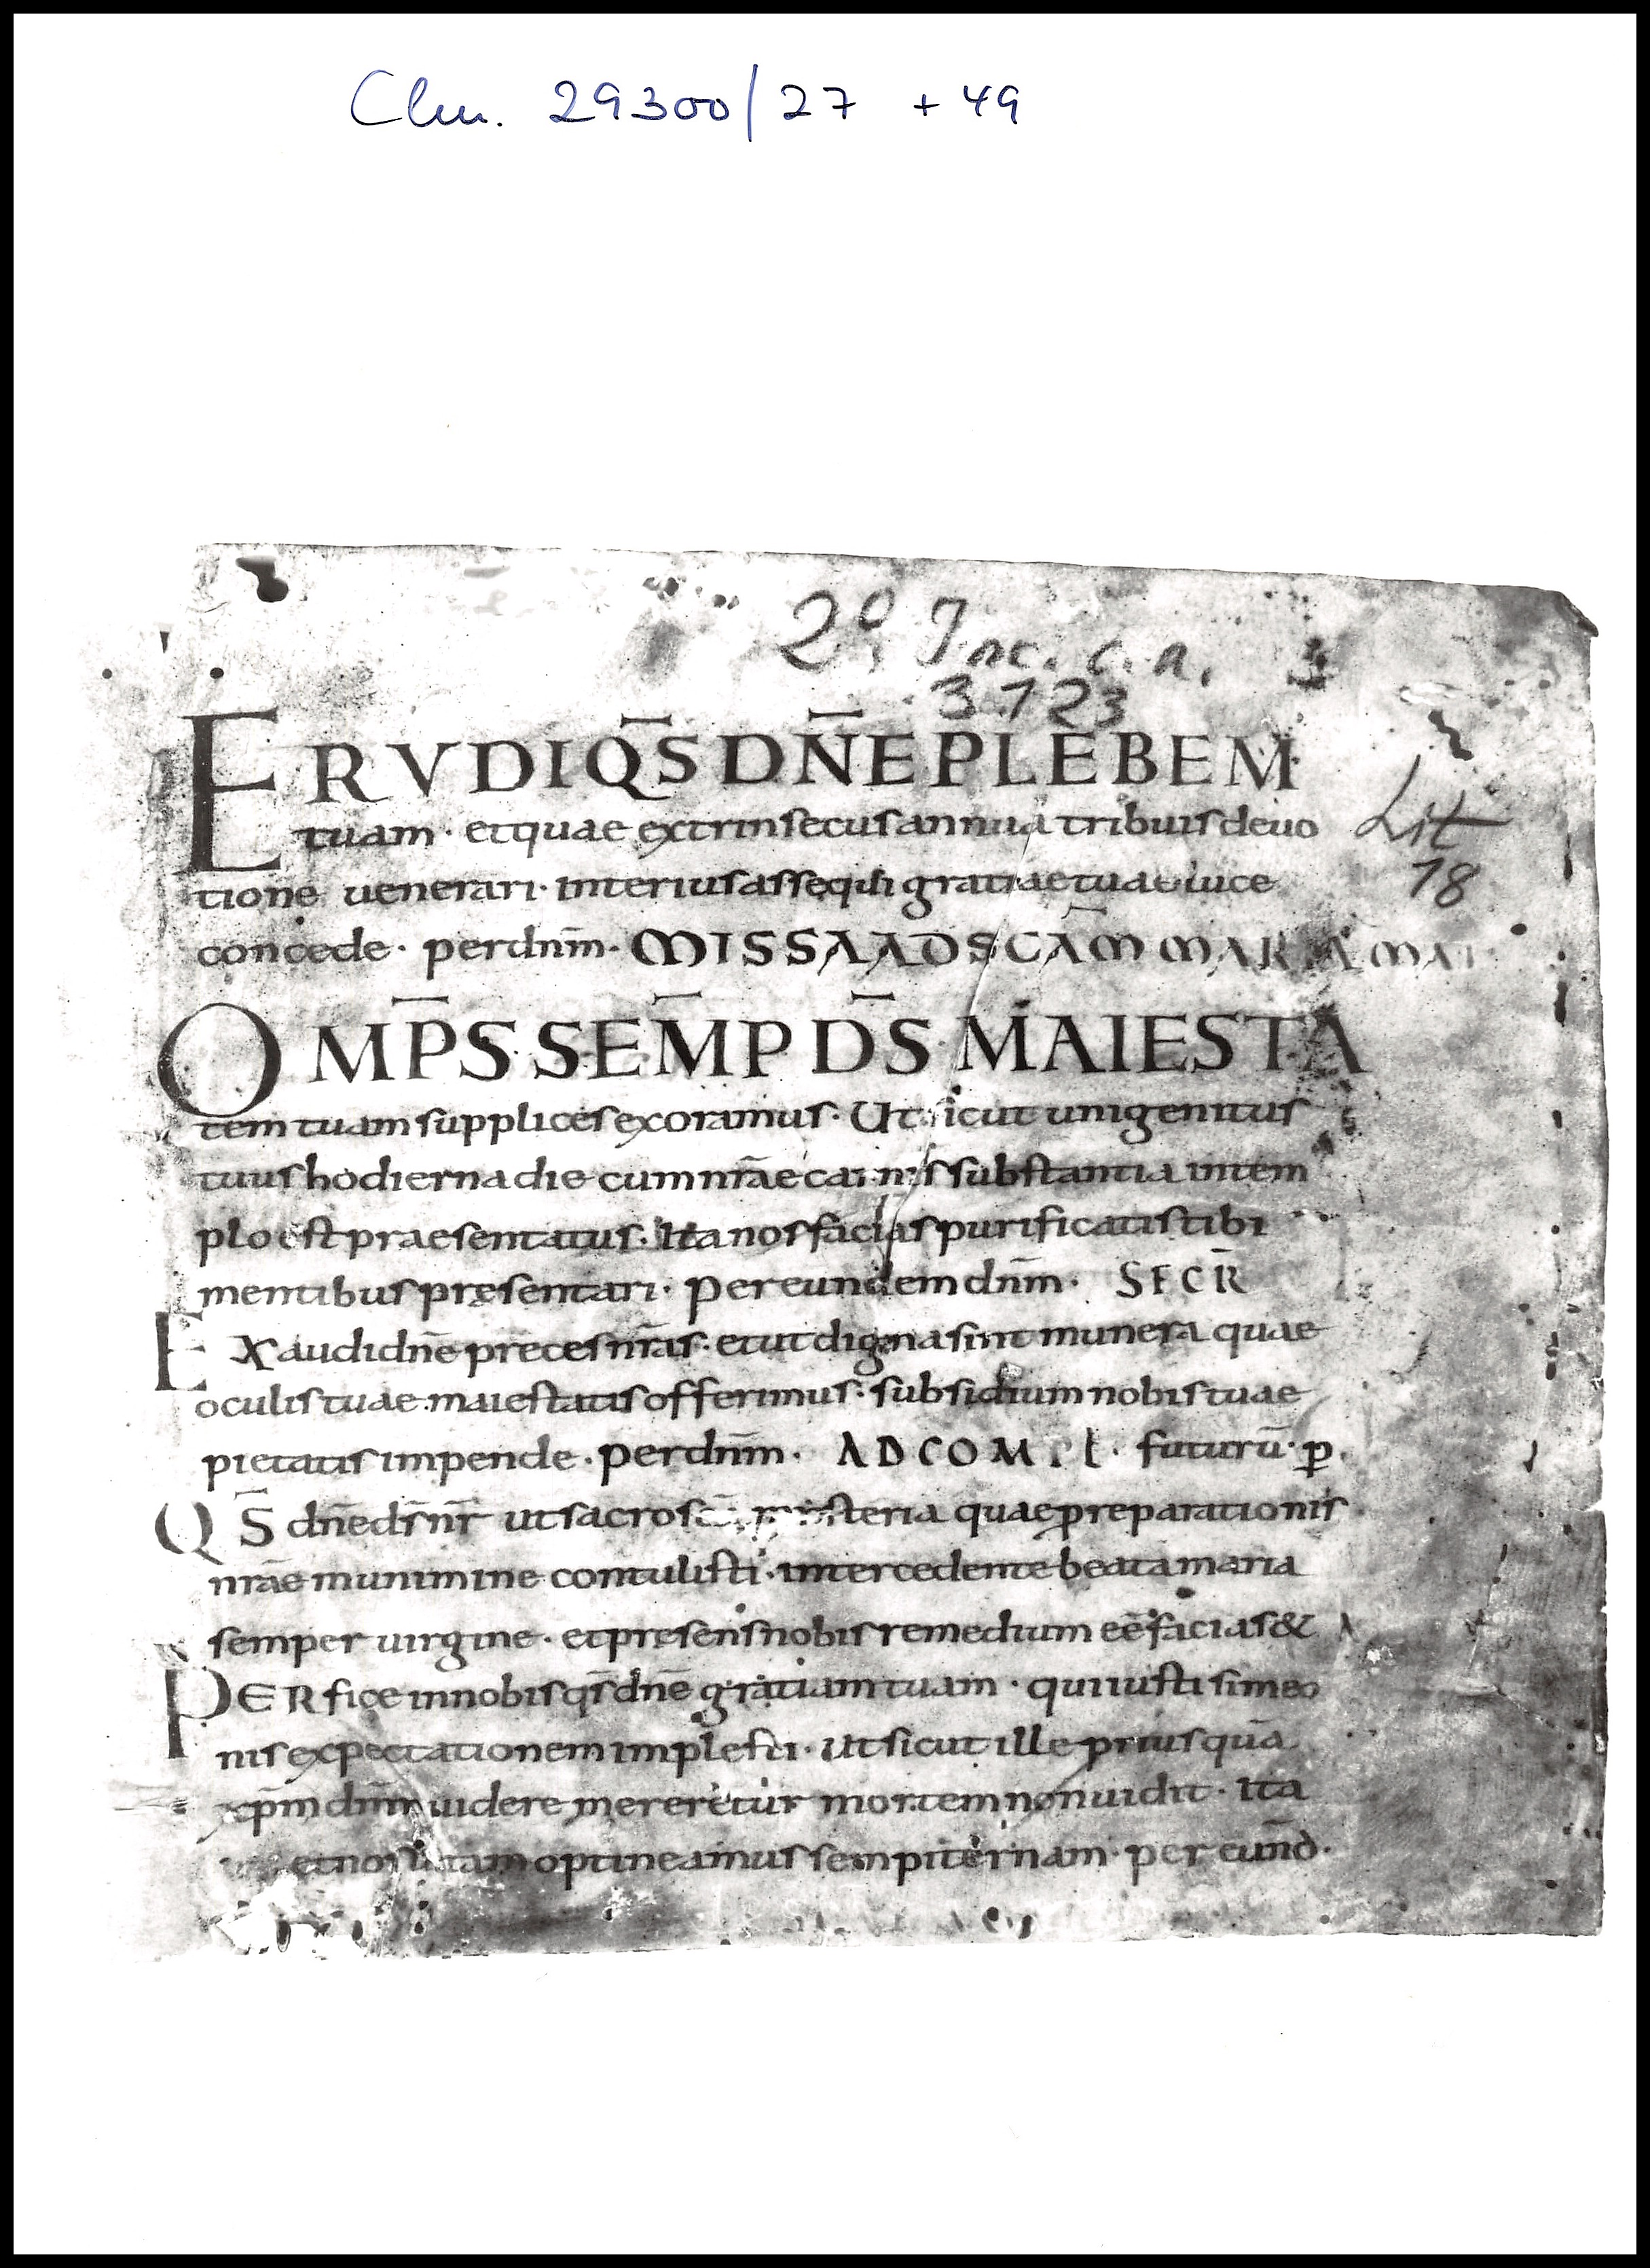 Clm. 29300/27 + 49
2° Inc. c. a.
3723
ERVDI Q̄S DN̄E PLEBEM
tuam · et quae extrinsecus annua tribuis deuo
Lit
18
tione uenerari · interius assequi gratiae tuae luce
concede · per dn̄m · MISSA AD SC̄AM MARIAM MAI
OMP̄S SEM̄P D̄S MAIESTA
tem tuam supplices exoramus · Ut sicut unigenitus
tuus hodierna die cum nr̄ae carnis substantia in tem
plo est praesentatus · Ita nos facias purificatis tibi
mentibus pręsentari · Per eundem dn̄m · SECR̄
EXaudi dn̄e preces nr̄as · et ut digna sint munera quae
oculis tuae maiestatis offerimus · subsidium nobis tuae
pietatis impende · per dn̄m · AD COMPL · futurū · p̄
QS̄ dn̄e ds̄ nr̄ ut sacros̄c̄ misteria quae p reparationis
nr̄ae munimine contulisti · intercedente beata maria
semper uirgine · et pręsens nobis remedium eē facias &
PERfice in nobis qs̄ dn̄e gratiam tuam · qui iusti simeo
nis expectationem implesti · Ut sicut ille prius quā
xp̄m dn̄m uidere mereretur mortem non uidit · Ita
et nos uitam optineamus sempiternam · per eund̄ ·